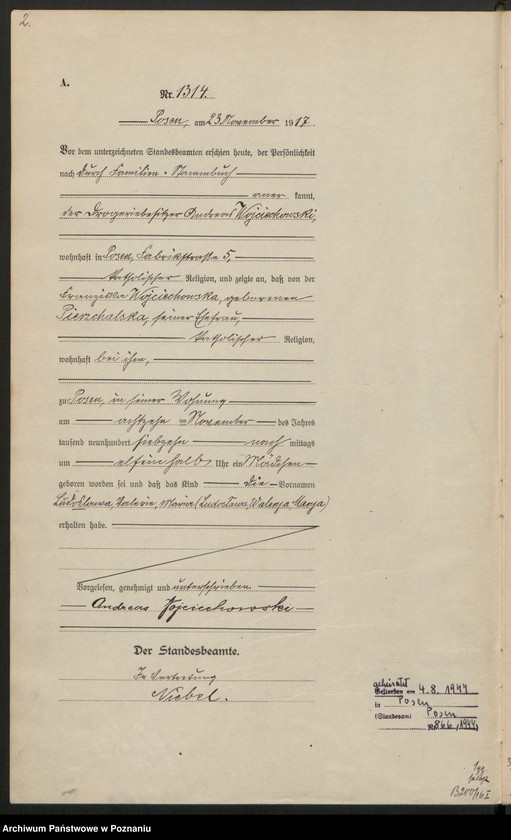 2.
A.
Nr. 1314.
Posen, am 23 November 1917.
Vor dem unterzeichneten Standesbeamten erschien heute, der Persönlichkeit
nach durch Familien-Stammbuch
aner kannt,
der Drogeriebesitzer Andreas Wojciechowski,
wohnhaft in Posen, Fabrikstraße 5,
katholischer Religion, und zeigte an, daß von der
Franziska Wojciechowska, geborenen
Pierzchalska, seiner Ehefrau,
katholischer Religion,
wohnhaft bei ihm,
zu Posen, in seiner Wohnung
am achtzehn ten November des Jahres
tausend neunhundert siebzehn nach mittags
um elfeinhalb Uhr ein Mädchen
geboren worden sei und daß das Kind die Vornamen
Ludoslawa, Valerie, Maria (Ludosława, Walerja, Marja)
erhalten habe.
Vorgelesen, genehmigt und unterschrieben.
Andreas Wojciechowski
Der Standesbeamte.
In Vertretung
Niebel.
geheiratet
Gestorben am 4.8.1944
in Posen
(Standesamt Posen
866/1944)
B200/
Archiwum Państwowe w Poznaniu